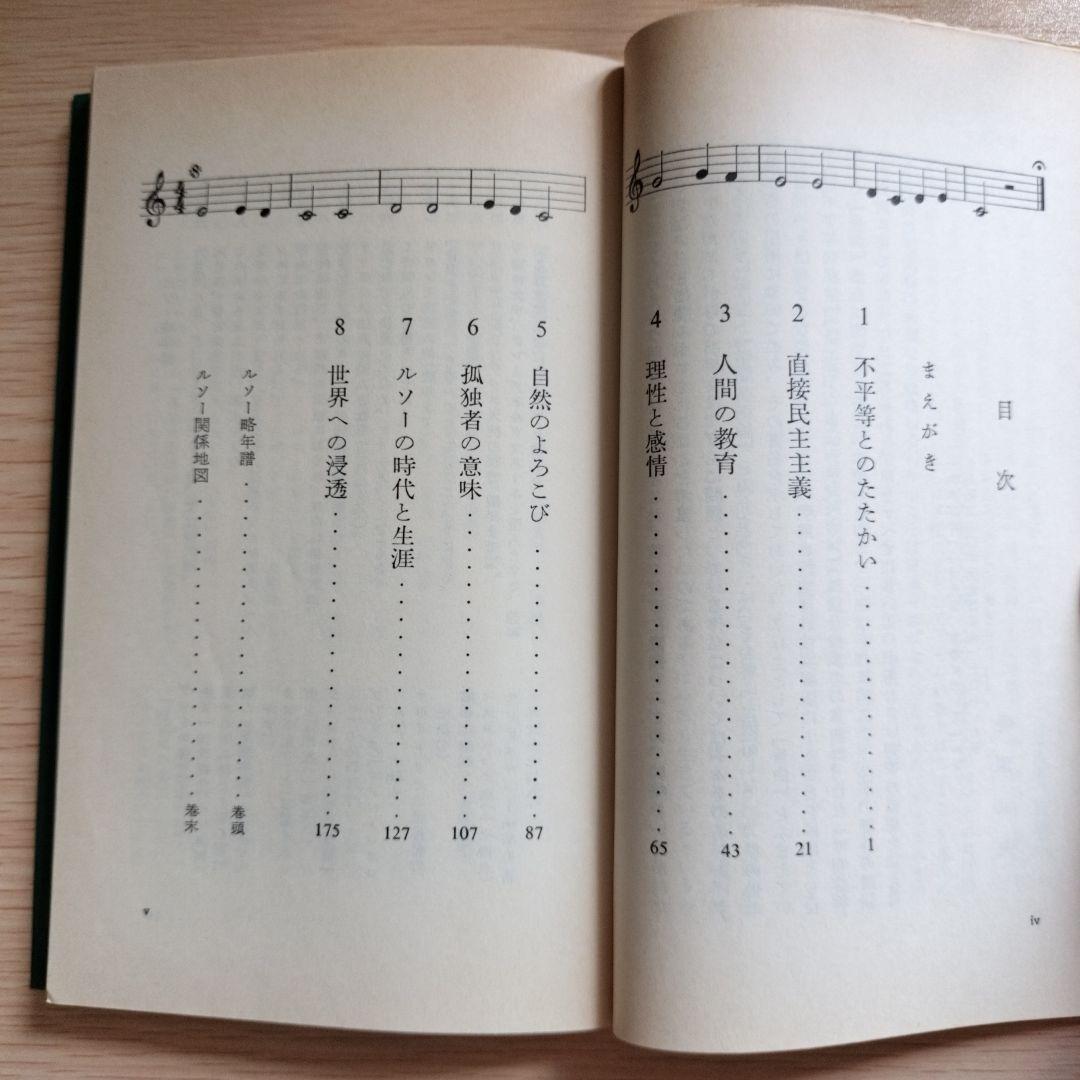 目次
まえがき
1 不平等とのたたかい・・・・・・・・・・1
2 直接民主主義・・・・・・・・・・・・・21
3 人間の教育・・・・・・・・・・・・・・43
4 理性と感情・・・・・・・・・・・・・・65
iv
5 自然のよろこび・・・・・・・・・・・・87
6 孤独者の意味・・・・・・・・・・・・・107
7 ルソーの時代と生涯・・・・・・・・・・127
8 世界への浸透・・・・・・・・・・・・・175
ルソー略年譜・・・・・・・・・・・・・巻頭
ルソー関係地図・・・・・・・・・・・・巻末
v